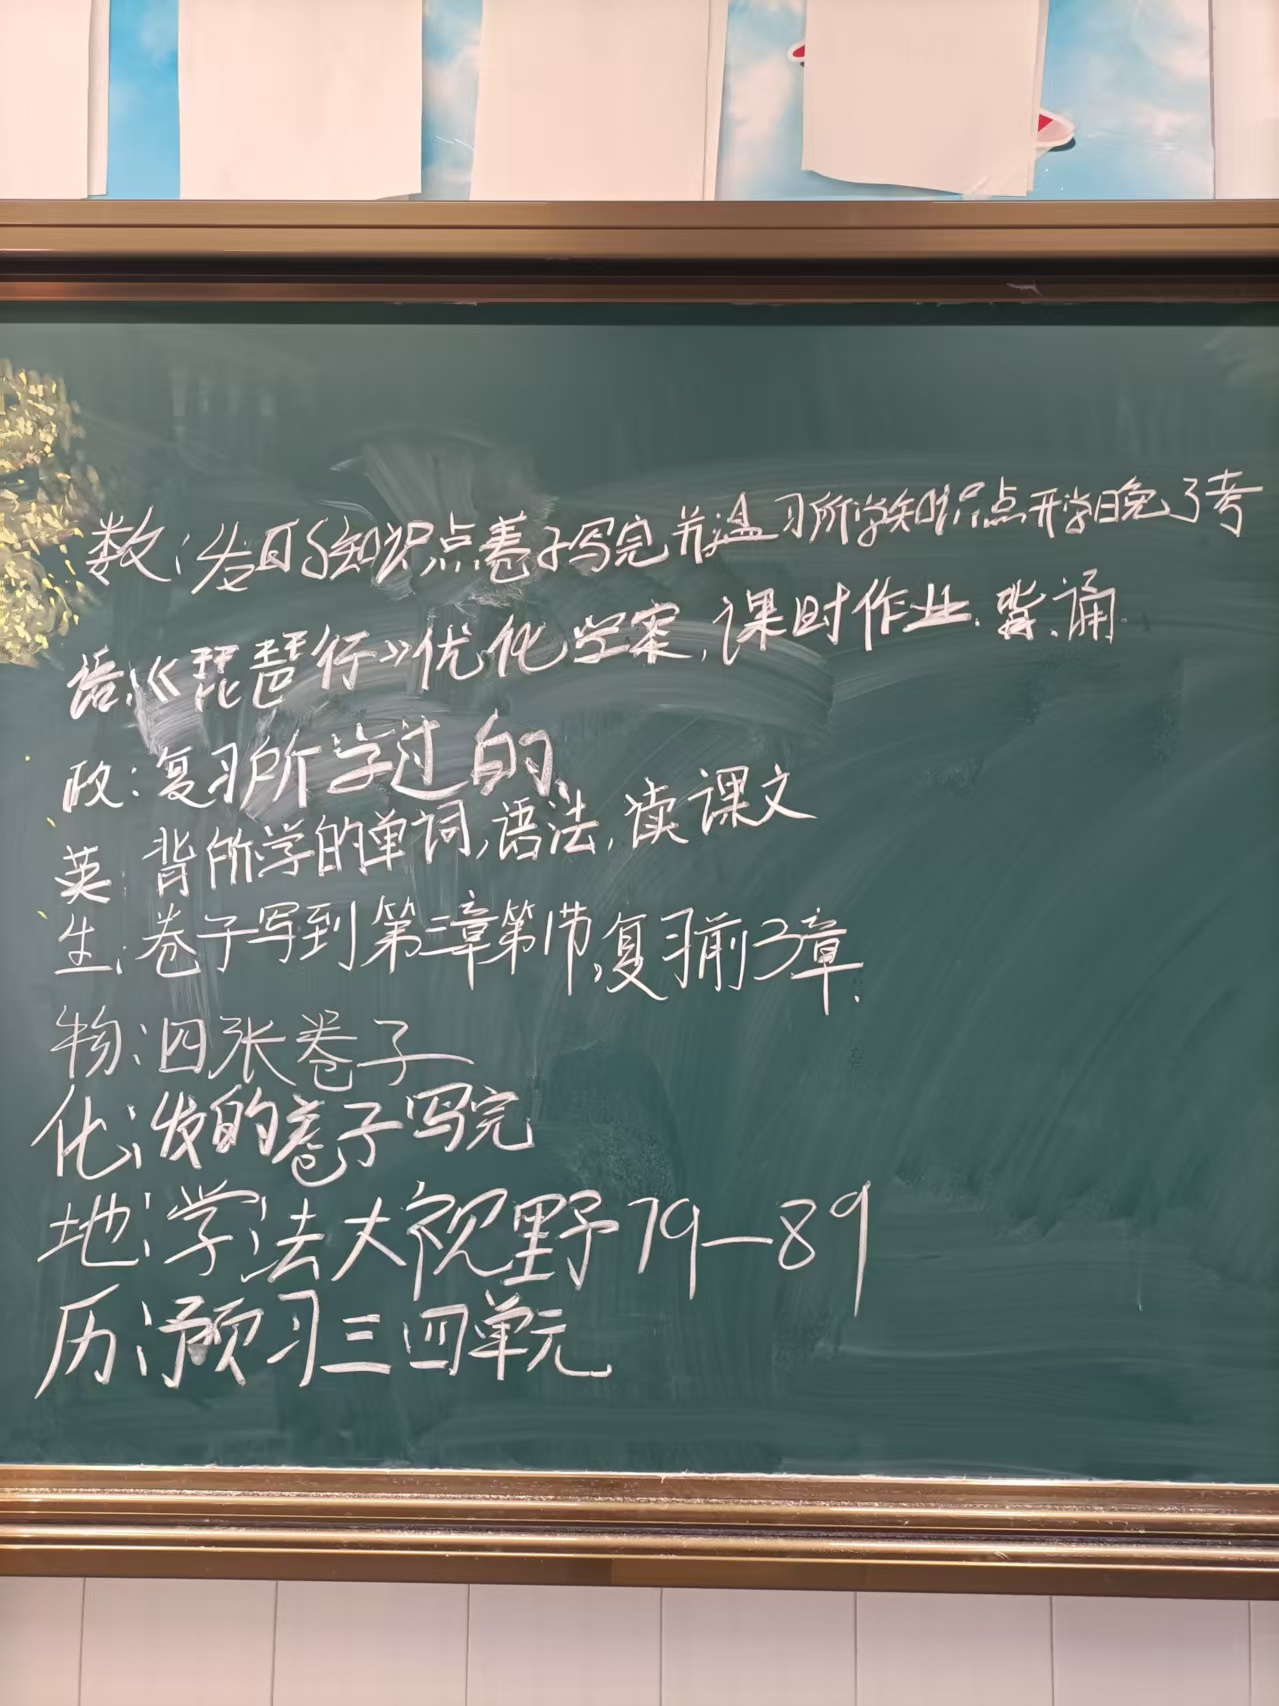 数:发的知识点卷子写完并温习所学知识点开学日晚了考
语:《琵琶行》优化学案,课时作业.背、诵.
政:复习所学过的、
英 背所学的单词,语法,读课文
生:卷子写到第三章第1节,复习前3章.
物:四张卷子
化:发的卷子写完
地:学法大视野79—89
历:预习三四单元